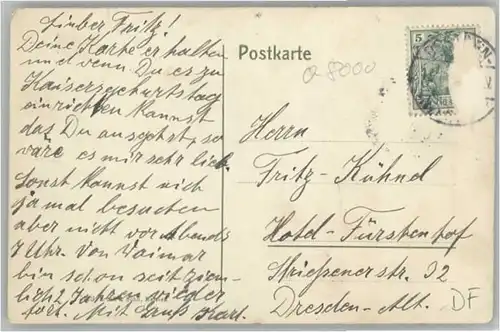 Lieber Fritz!
Deine Karte erhalten
und wenn Du es zu
Kaisersgeburtstag
einrichten kannst
das Du ausgehst, so
wäre es mir sehr lieb.
Sonst kannst mich
ja mal besuchen
aber nicht vor abends
7 Uhr. Von Waimar
bin schon seit ziem-
lich 2 Jahren wieder
fort. Mit Gruß Kurt.
Postkarte
Q 8000
5
Herrn
Fritz Kühnel
Hotel-Fürstenhof
Striesenerstr. 32
Dresden-Alt.
DF